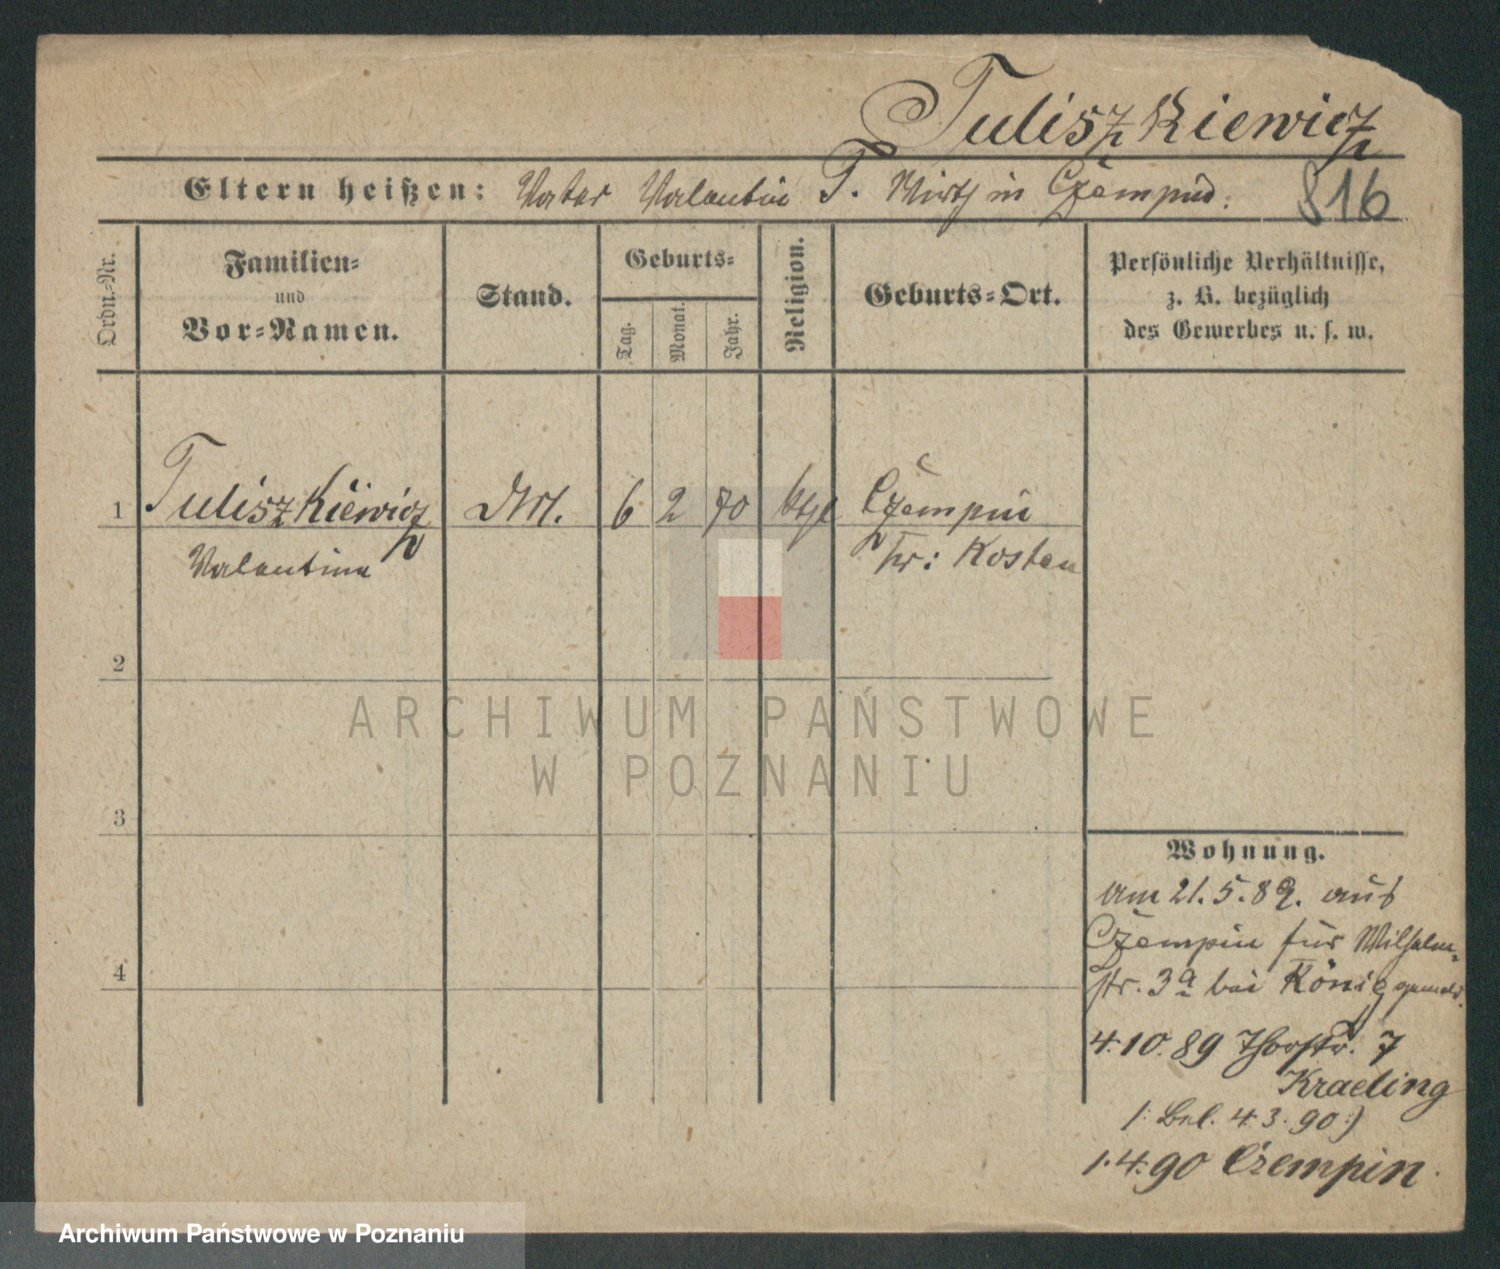 Tuliszkiewicz
Eltern heißen: Vater Valentin T. Wirth in Czempin.
816
Ordn.-Nr.
Familien-
und
Vor-Namen.
Stand.
Geburts-
Tag.
Monat.
Jahr.
Religion.
Geburts-Ort.
Persönliche Verhältnisse,
z. B. bezüglich
des Gewerbes u. s. w.
1 Tuliszkiewicz 6 2 70 ktgl Czempin
Valentina Kr: Kosten
2
3
4
ARCHIWUM PAŃSTWOWE
W POZNANIU
Wohnung.
am 21.5.89. aus
Czempin für Wilhelm-
str. 3a bei König gemeld.
4.10.89 Thorstr. 7
Kraeling
1.4.90 Czempin.
Archiwum Państwowe w Poznaniu